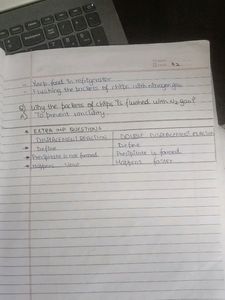 - Keep food in refrigerator
- Flushing the packets of chips with nitrogen gas.
Q) Why the packets of chips is flushed with N2 gas?
A) To prevent rancidity.
* EXTRA IMP QUESTIONS
DISPLACEMENT REACTION DOUBLE DISPLACEMENT REACTION
→ Define Define
→ Precipitate is not formed Precipitate is formed
→ Happens slow Happens faster